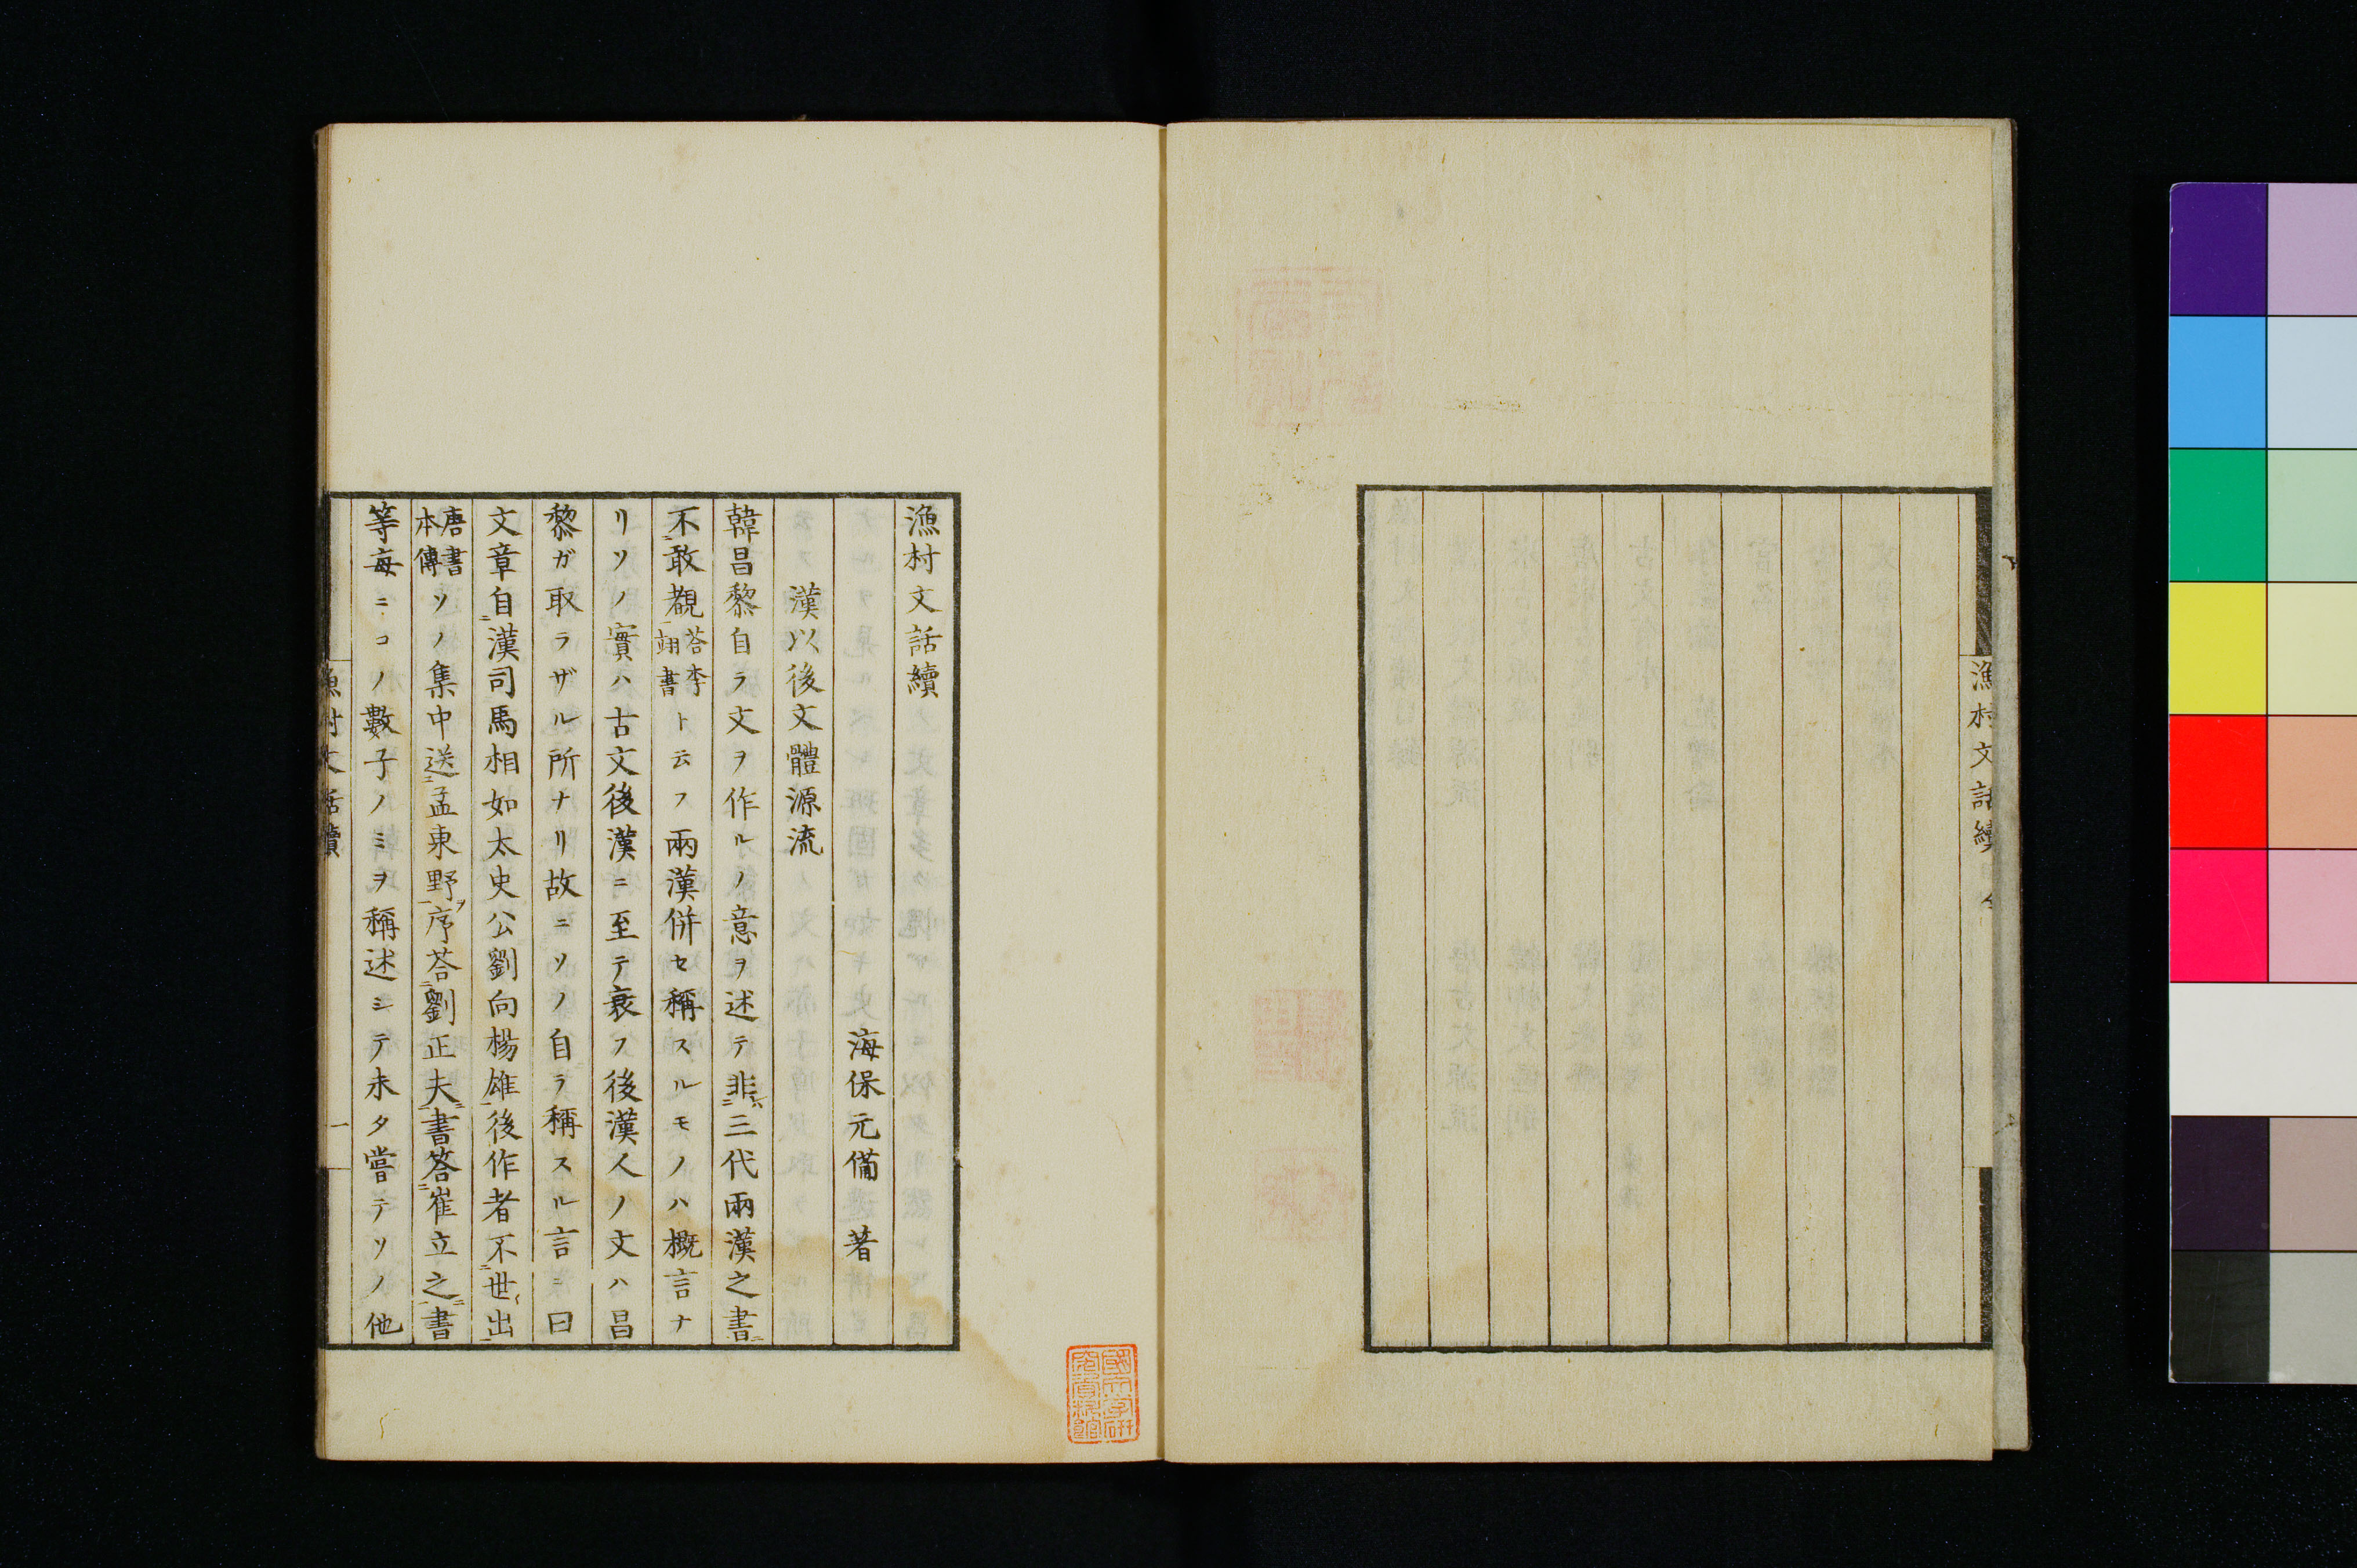 漁村文話續
漁村文話續
海保元備 著
漢以後文體源流
韓昌黎自ラ文ヲ作ルノ意ヲ述テ非三代兩漢之書
不敢觀答李翊書ト云フ兩漢併セ稱スルモノハ概言ナ
リソノ實ハ古文後漢ニ至テ衰フ後漢人ノ文ハ昌
黎ガ取ラザル所ナリ故ニソノ自ラ稱スル言ニ曰
文章自漢司馬相如太史公劉向楊雄後作者不世出
唐書本傳ソノ集中送孟東野序荅劉正夫書答崔立之書
等毎ニコノ數子ノミヲ稱述シテ未タ嘗テソノ他
漁村文話續
一